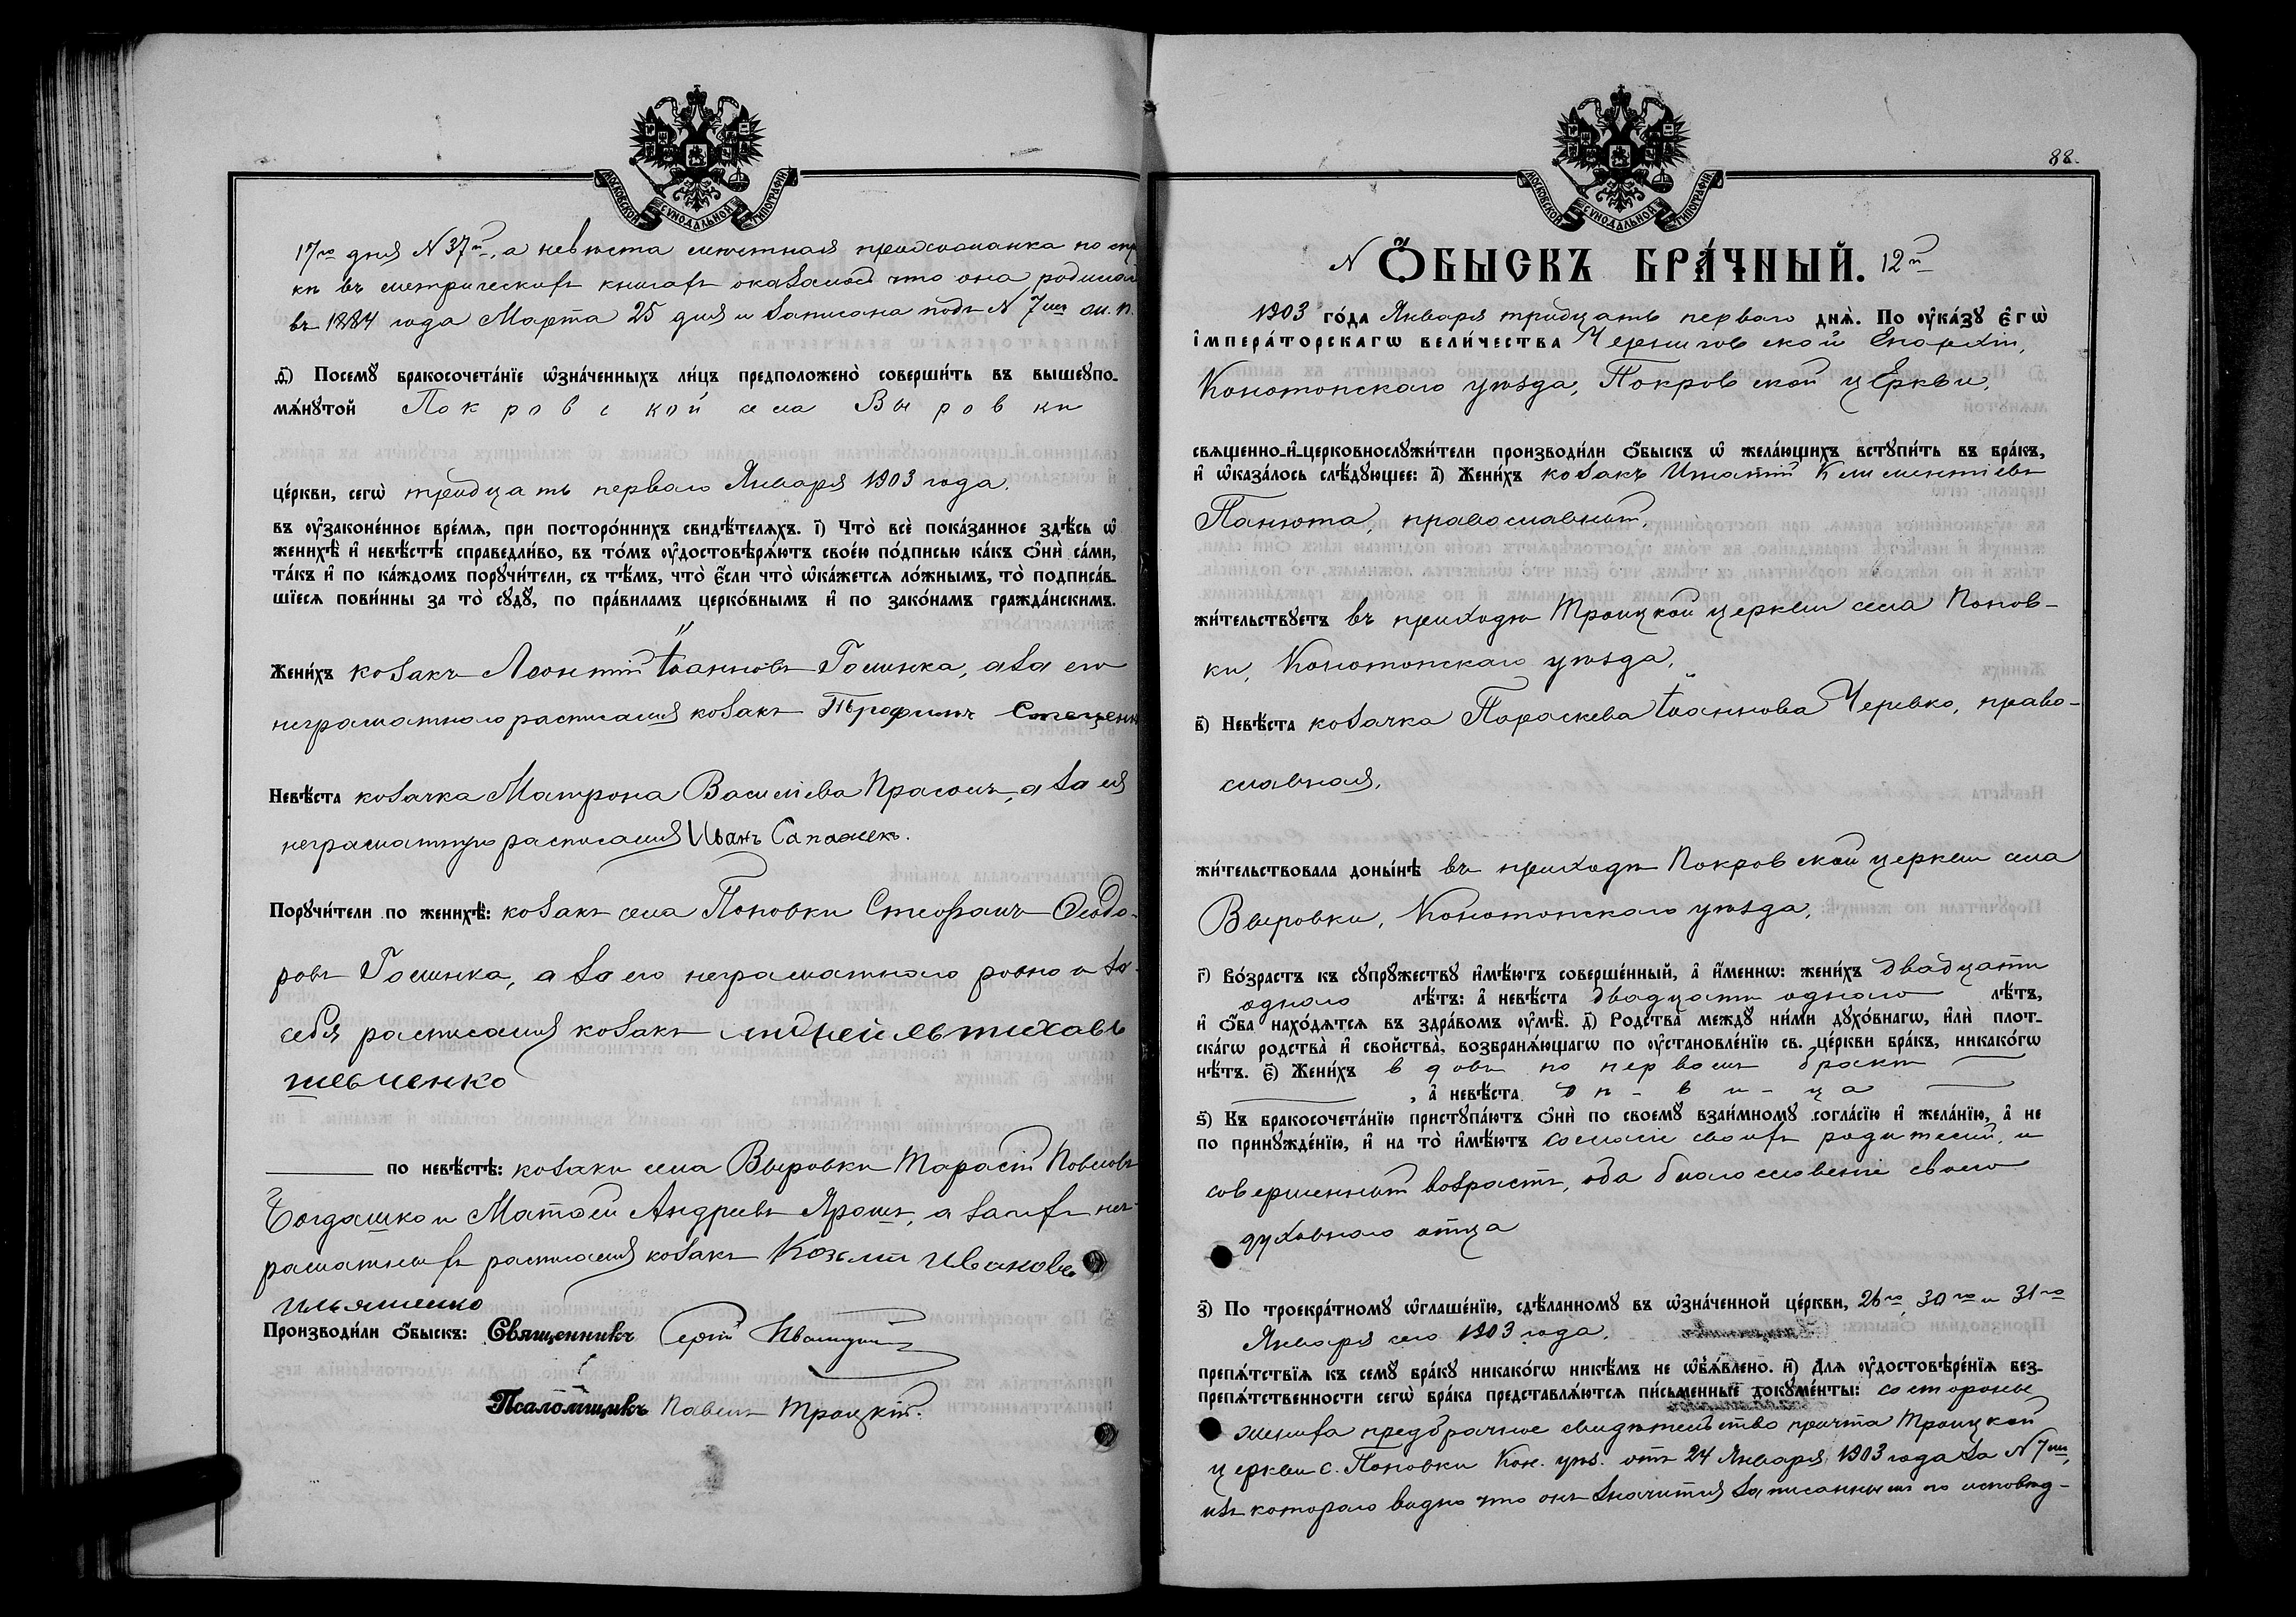 МОСКОВСКОЙ СѴНОДАЛЬНОЙ ТИПОГРАФІИ
17го дня N 37й, а невѣста мѣстная прихожанка по спр
кѣ въ метрическихъ книгахъ оказалось что она родилась
въ 1884 года Марта 25 дня и записана подъ N 7мъ ж. п.
д҃) Посемꙋ бракосочета́нїе ѡ҆зна́ченныхъ ли́цъ предположено̀ соверши́ть въ вышеꙋпо-
мѧ́нꙋтой Покровской села Выровки
це́ркви, сегѡ̀ тридцать перваго Января 1903 года.
въ ѹ҆законе́нное вре́мѧ, при посторо́ннихъ свидѣ́телѧхъ. і҃) Что̀ всѐ пока́занное здѣ́сь ѡ҆
женихѣ̀ и҆ невѣ́стѣ справедли́во, въ то́мъ ѹ҆достовѣрѧ́ютъ свое́ю по́дписью ка́къ ѻ҆нѝ са́ми,
та́къ и҆ по ка́ждомъ порꙋчи́тели, съ тѣ́мъ, что̀ є҆́сли что̀ ѡ҆ка́жетсѧ ло́жнымъ, то̀ подписа́в-
шїесѧ пови́нны за то̀ сꙋдꙋ̀, по пра́виламъ церко́внымъ и҆ по зако́намъ гражда́нскимъ.
Жени́хъ козакъ Леонтій Іоанновъ Галинка, а за его
неграматнаго расписался козакъ Трофимъ Стеценк
Невѣ́ста козачка Матрона Василіева Прасолъ, а за ея
неграматную расписался Иванъ Сапожек.
Порꙋчи́тели по женихѣ̀: козакъ села Поповки Стефанъ Ѳеодо-
ровъ Галинка, а за его неграматнаго равно и за
себя расписался козакъ
шевченко
по невѣ́стѣ: козаки села Выровки Тарасій Повловъ
Богдашко и Матѳей Андреевъ Ярошъ, а за нихъ нег-
раматныхъ расписался козакъ Козми Ивановъ
Ильяшенко
Производи́ли ѻ҆́быскъ: Священникъ Сергій
Псаломщикъ Павелъ Троицкій.
88.
МОСКОВСКОЙ СѴНОДАЛЬНОЙ ТИПОГРАФІИ
N Ѻ҆́БЫСКЪ БРА́ЧНЫЙ. 12й
1903 го́да Января тридцать перваго днѧ̀. По ѹ҆ка́зꙋ є҆гѡ̀
і҆мпера́торскагѡ вели́чества Черниговской Епархіи,
Конотопскаго уѣзда, Покровской церкви,
свѧщенно-и҆-церковнослꙋжи́тели производи́ли ѻ҆́быскъ ѡ҆ жела́ющихъ встꙋпи́ть въ бра́къ,
и҆ ѡ҆каза́лось слѣ́дꙋющее: а҃) Жени́хъ козакъ Игнатій Климентіевъ
Панюта, православный,
жи́тельствꙋетъ въ приходѣ Троицкой церкви села Попов-
ки, Конотопскаго уѣзда,
в҃) Невѣ́ста козачка Параскева Іоаннова Черевко, право-
славная,
жи́тельствовала доны́нѣ въ приходѣ Покровской церкви села
Выровки, Конотопскаго уѣзда,
г҃) Во́зрастъ къ сꙋпрꙋ́жествꙋ и҆мѣ́ютъ соверше́нный, а҆ и҆́меннѡ: жени́хъ двадцати
одного лѣ́тъ: а҆ невѣ́ста двадцати одного лѣ́тъ,
и҆ ѻ҆́ба нахо́дѧтсѧ въ здра́вомъ ѹ҆мѣ̀. д҃) Родства̀ междꙋ̀ ни́ми дꙋхо́внагѡ, и҆лѝ плот-
ска́гѡ родства̀ и҆ свойства̀, возбранѧ́ющагѡ по ѹ҆становле́нїю св. це́ркви бра́къ, никако́гѡ
нѣ́тъ. є҃) Жени́хъ вдовъ по первомъ бракѣ
, а҆ невѣ́ста дѣ-ви-ца
ѕ҃) Къ бракосочета́нїю пристꙋпа́ютъ ѻ҆нѝ по своемꙋ̀ взаи́мномꙋ согла́сїю и҆ жела́нїю, а҆ не
по принꙋжде́нїю, и҆ на то̀ и҆мѣ́ютъ согласіе своихъ родителей, и
совершенный возрастъ, оба благословеніе своего
духовнаго отца
з҃) По троекра́тномꙋ ѡ҆глаше́нїю, сдѣ́ланномꙋ въ ѡ҆зна́ченной це́ркви, 26го, 30го и 31го
Января сего 1903 года,
препѧ́тствїѧ къ семꙋ̀ бра́кꙋ никако́гѡ никѣ́мъ не ѡ҆б̾ѧ́влено. и҃) Длѧ ѹ҆достовѣре́нїѧ без-
препѧ́тственности сегѡ̀ бра́ка представлѧ́ютсѧ пи́сьменные докꙋме́нты: со стороны
жениха предбрачное свидѣтельство причта Троицкой
церкви с. Поповки Кон. уѣз. отъ 24 Января 1903 года за N 7мъ,
изъ котораго видно что онъ значится записаннымъ по исповѣд-